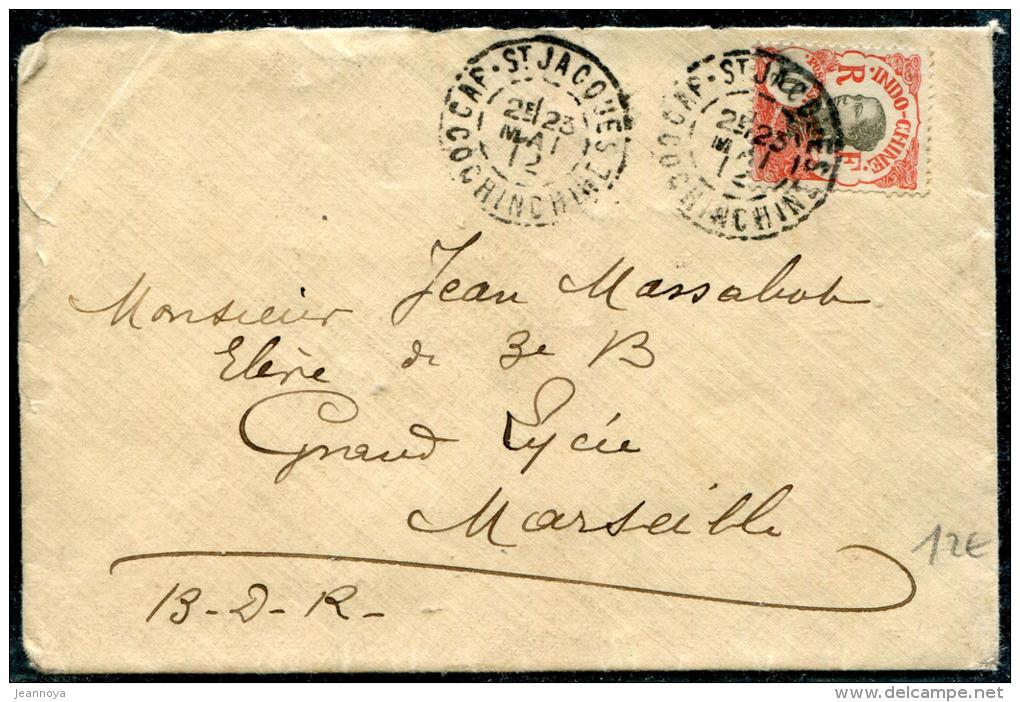 CAP-ST JACQUES
2E/23
MAI
12
COCHINCHINE
CAP-ST JACQUES
2E/23
MAI
12
COCHINCHINE
INDO-CHINE
R
F
Monsieur Jean Massabob
Elève de 3e B
Grand Lycée
Marseille
B-D-R-
12€
jeannoya
delcampe.net